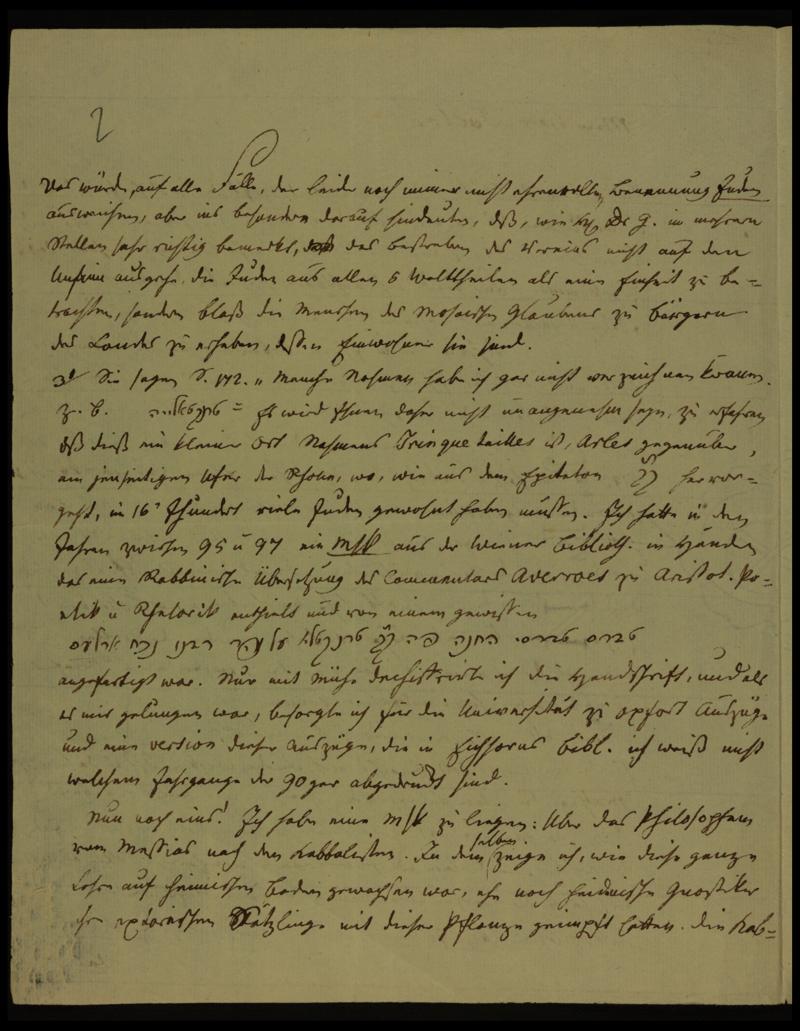 2
Das würde, auf alle Fälle, der leider noch immer nicht ehrenvollen, Benennung Juden
ausweichen, aber ins besondere darauf hindeuten, daß, wie Dr G. in mehrern
Stellen sehr richtig bemerkt, das Bestreben des Vereins nicht auf den
Unsinn ausgehe, die Juden aus allen 5 Welttheilen als eine Einheit zu be-
trachten, sondern bloß die Menschen des Mosaischen Glaubens zu Bürgern
des Landes zu erheben, dessen Einwohner sie sind.
3) Sie sagen S. 172. „Manche Nahmen habe ich gar nicht verzeichnen können.
z. B. טרנקטאליייה = Es wird Ihnen daher nicht unangenehm seyn, zu erfahren
daß dieß ein kleiner Ort Nahmens Trinquetailles ist, Arles gegenüber,
am jenseitigen Ufer der Rhone, wo, wie aus dem Epitheton קק hervor-
geht, in 16t Jhundert viele Juden gewohnt haben müssen. Ich hatte in den
Jahren zwischen 95 u 97 ein Msk aus der Wiener Biblioth. in Händen
das eine Rabbinische Übersetzung des Commentars Averroes zu Aristot. Po-
etik u Rhetorik enthielt und von einem gewissen
טברס טברסי החנה פה קק טרנקטלא על נהר רבנו נכח ארלעס
angefertigt war. Nur mit Mühe dechiffrirte ich die Handschrift, und als
es mir gelungen war, besorgte ich für die Universität zu Oxfort Auszüge
und eine version dieser Auszüge, die in Eichhorns Bibl. ich weiß nicht
welchem Jahrgange der 90ger abgedruckt sind.
Nun noch eins! Ich habe eine Msk zu liegen: Über das Philosophem
vom Messias nach den Kabbalisten. In demselben zeige ich, wie diese ganze
Lehre auf heimischen Boden gewachsen war, ehe noch heidnische Gnostiker
ihre exotischen Sätzlinge mit dieser Pflanze geimpft hatten. Die Kab-